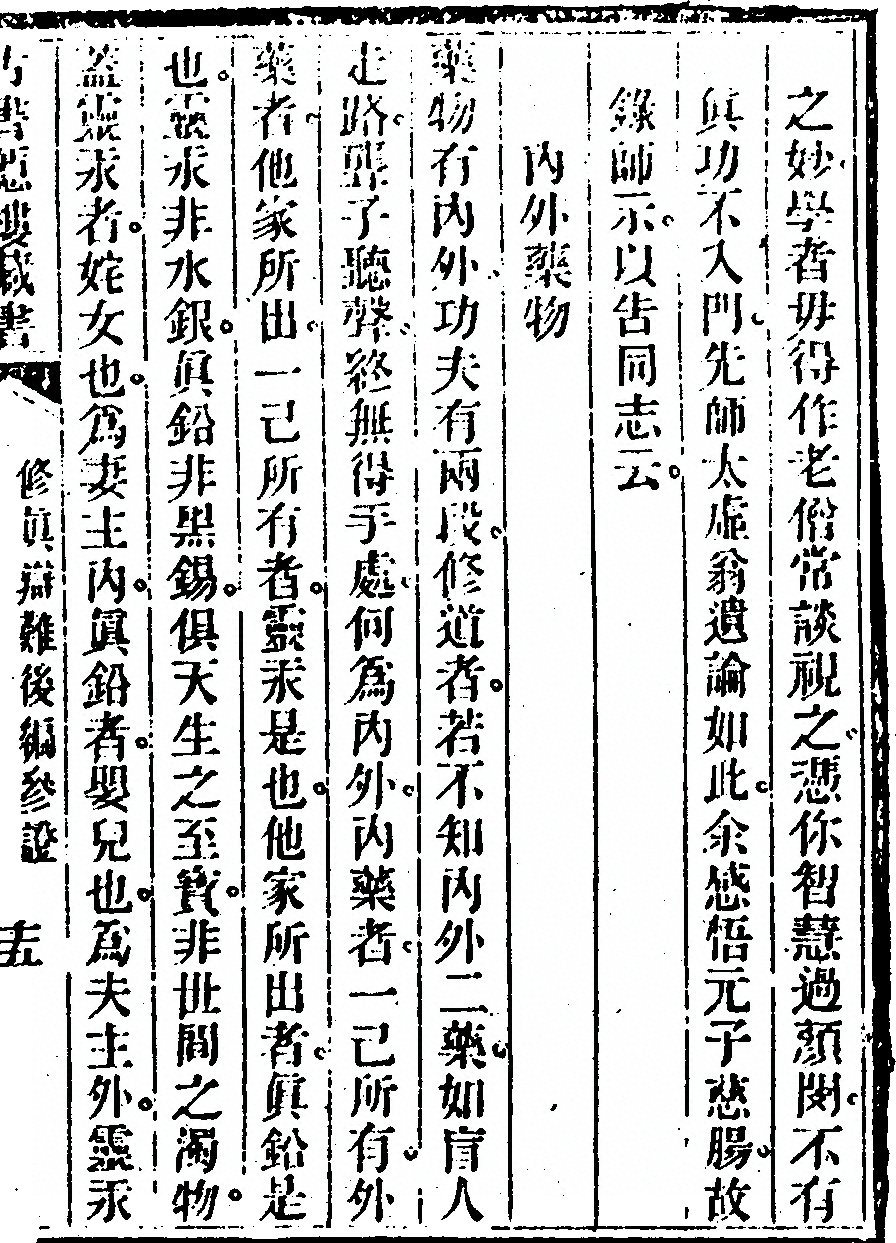 之妙學者毋得作老僧常談視之憑你智慧過顏閔不有
眞功不入門先師太虛翁遺論如此余感悟元子慈腸故
錄師示以吿同志云
內外藥物
藥物有內外功夫有兩段修道者若不知內外二藥如盲人
走路聾子聽聲終無得手處何爲內外內藥者一己所有外
藥者他家所出一己所有者靈汞是也他家所出者眞鉛是
也靈汞非水銀眞鉛非黑錫俱天生之至寶非世間之濁物
蓋靈汞者姹女也爲妻主內眞鉛者嬰兒也爲夫主外靈汞
修眞辯難後編參證